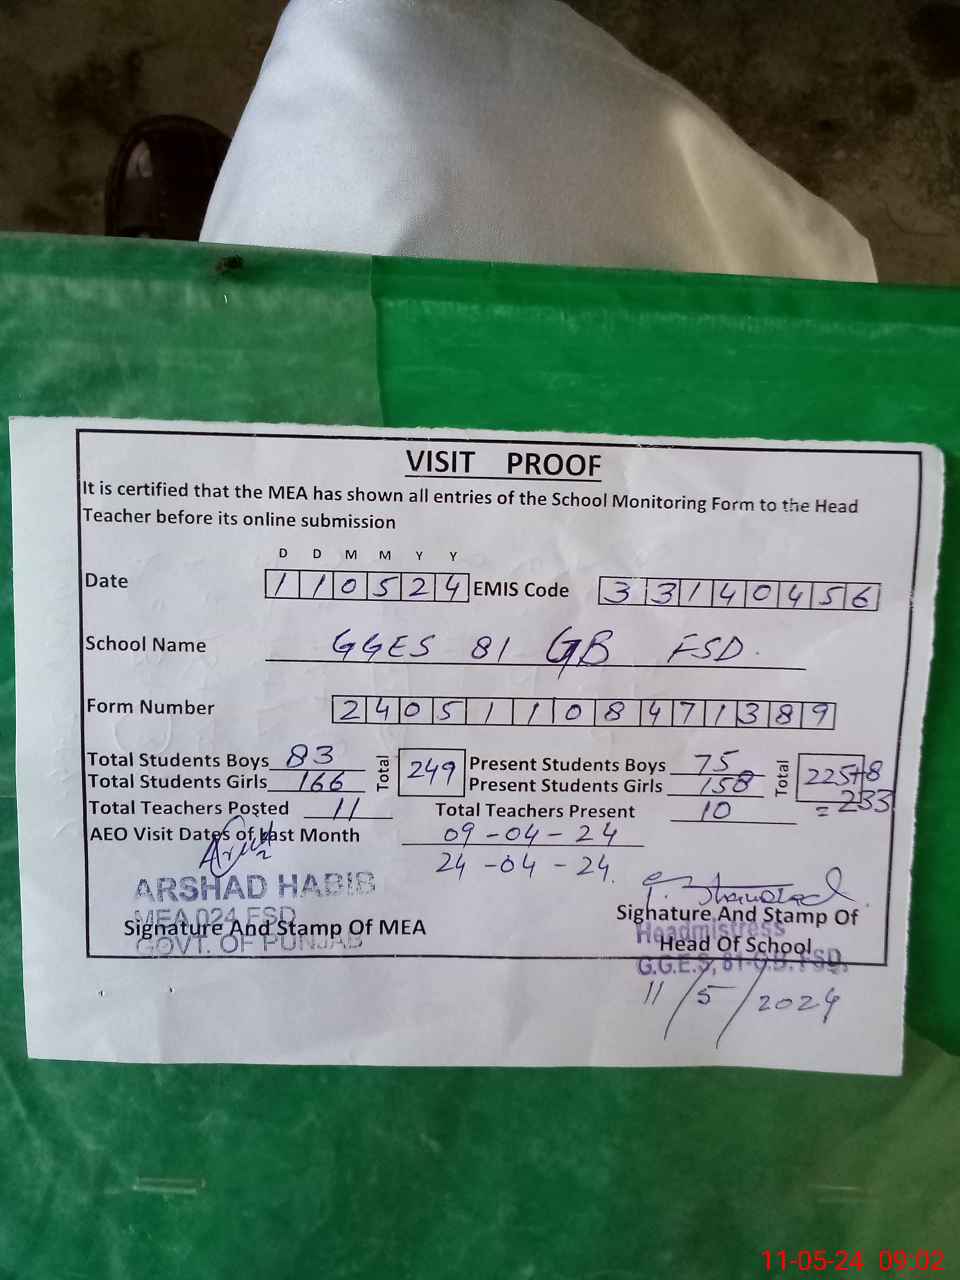 VISIT PROOF
It is certified that the MEA has shown all entries of the School Monitoring Form to the Head
Teacher before its online submission
D D M M Y Y
Date 110524 EMIS Code 33140456
School Name GGES 81 GB FSD.
Form Number 24051108471389
Total Students Boys 83 Total 249 Present Students Boys 75 Total 225+8
Total Students Girls 166 Present Students Girls 158 = 233
Total Teachers Posted 11 Total Teachers Present 10
AEO Visit Dates of Last Month 09-04-24
24-04-24.
ARSHAD HABIB
MEA 024 FSD
Signature And Stamp Of MEA
GOVT. OF PUNJAB
Signature And Stamp Of
Headmistress
Head Of School
G.G.E.S, 81-G.B. FSD.
11/5/2024
11-05-24 09:02